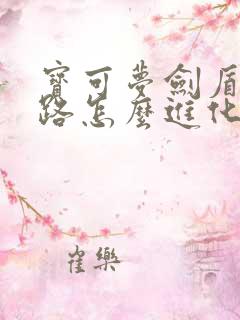 寶可夢劍盾
路怎麼進化
雀樂